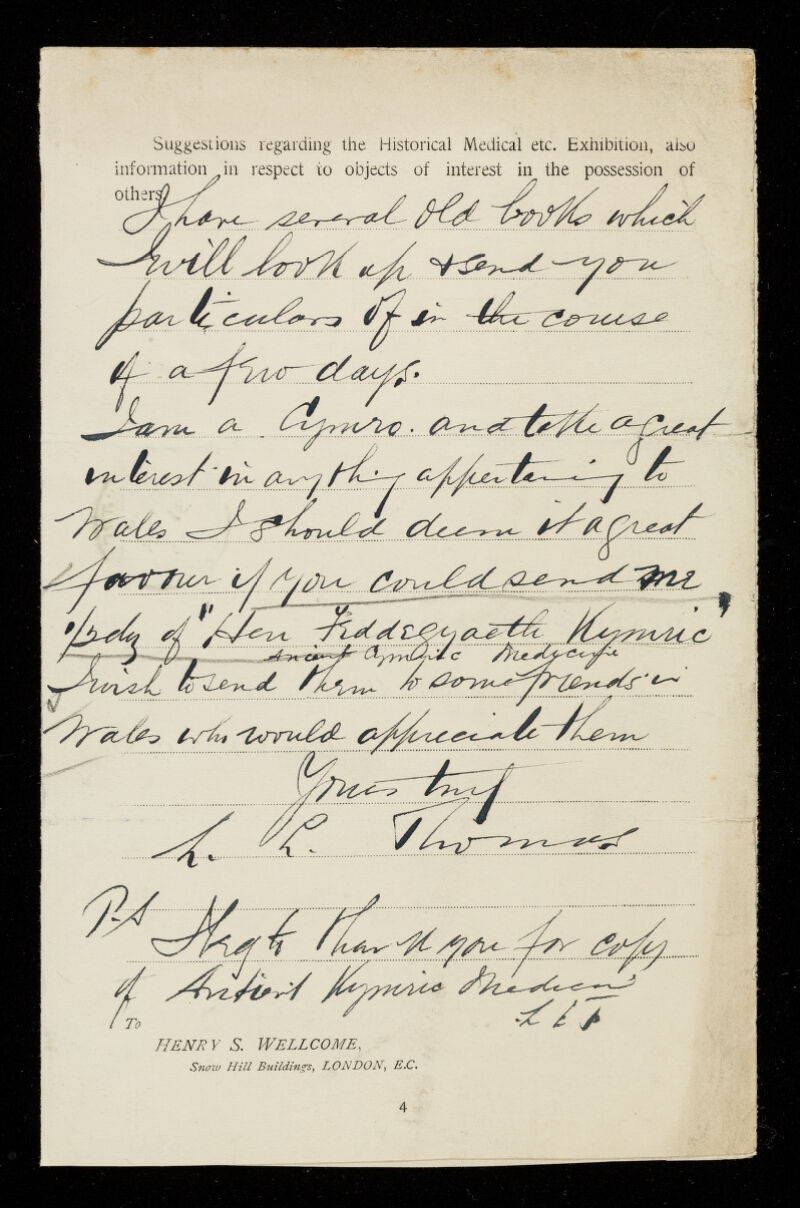 Suggestions regarding the Historical Medical etc. Exhibition, also
information in respect to objects of interest in the possession of
others.
I have several old books which
I will look up & send you
particulars of in the course
of a few days.
I am a Cymro. and take a great
interest in anything appertaining to
Wales I should deem it a great
favour if you could send me
1/2 doz of "Hen Feddegyaeth Kymric"
Ancient Cymric Medicine
I wish to send them to some friends in
Wales who would appreciate them
Yours truly
L. L. Thomas
P.S
I beg to thank you for copy
of Antient Kymric Medicine
To
HENRY S. WELLCOME,
Snow Hill Buildings, LONDON, E.C.
4